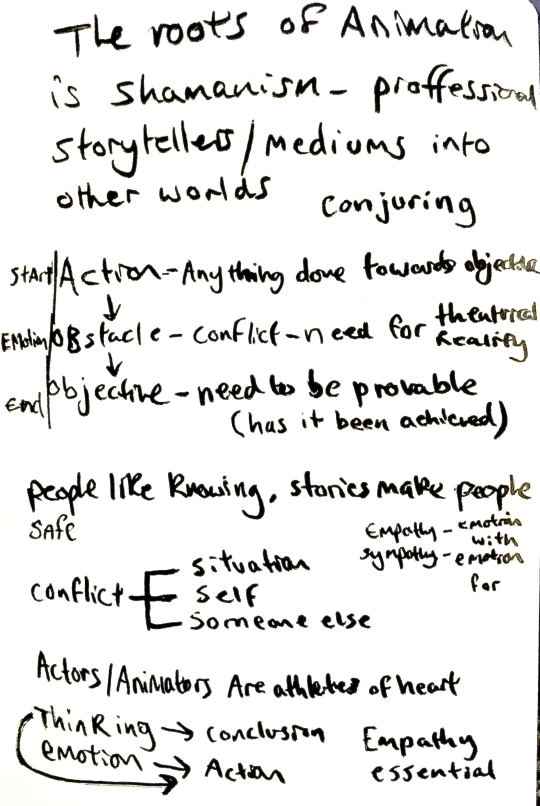 The roots of Animation
is shamanism - proffessional
storytellers/mediums into
other worlds conjuring
Start Action - Anything done towards objective
Emotion Obstacle - conflict - need for theatrical
Reality
End Objective - need to be provable
(has it been achieved)
people like knowing, stories make people
safe
Empathy - emotion
with
sympathy - emotion
for
conflict
situation
self
someone else
Actors/Animators Are athletes of heart
Thinking → conclusion
emotion → Action
Empathy
essential